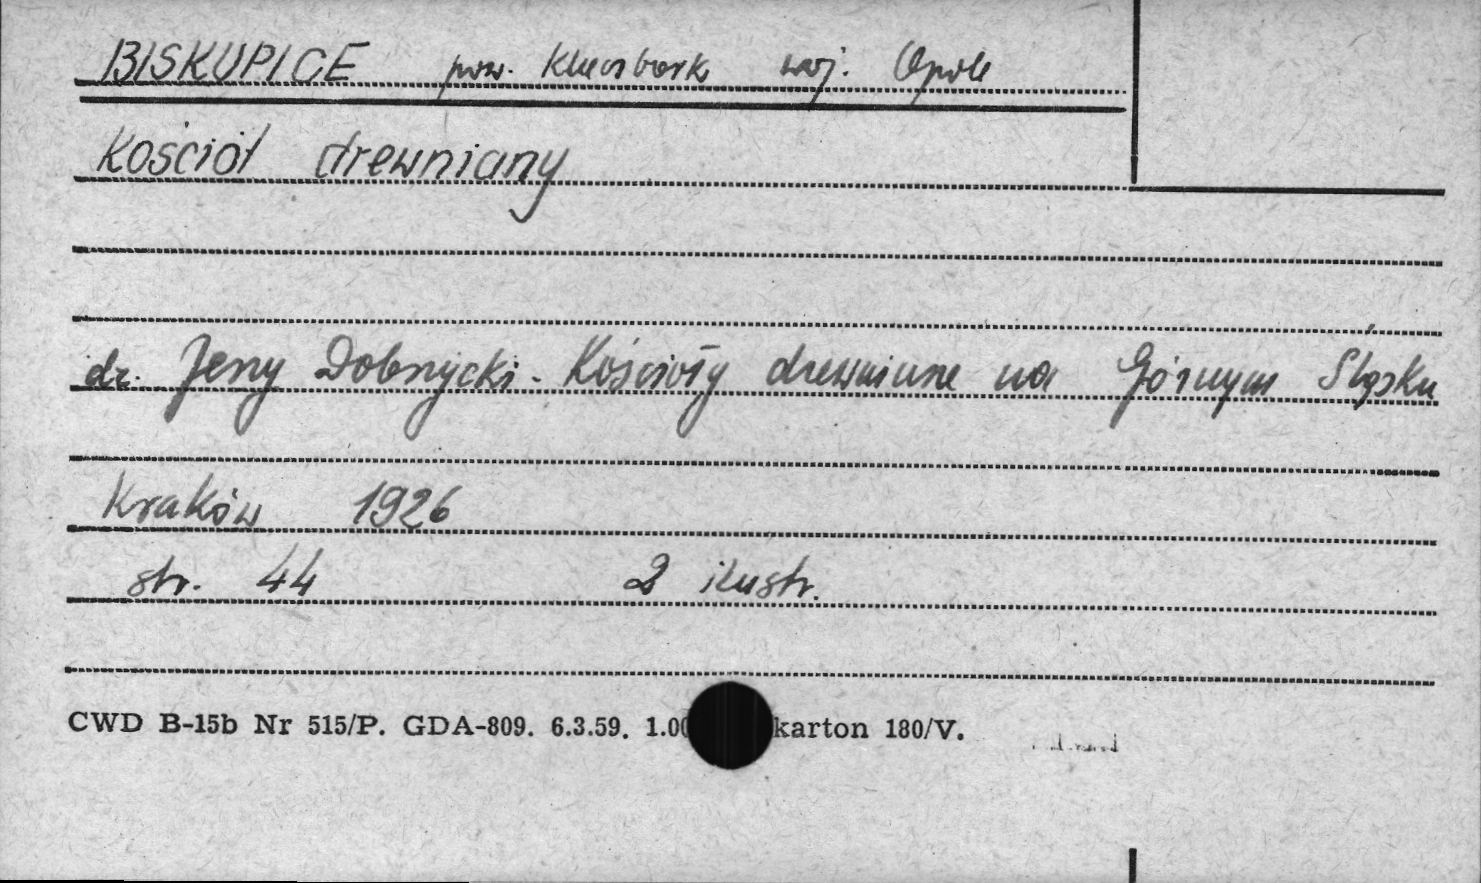 BISKUPICE pow. Kluczbork woj. Opole
Kościół drewniany
dr. Jerzy Dobrzycki - Kościoły drewniane na Górnym Śląsku
Kraków 1926
str. 44 2 ilustr.
CWD B-15b Nr 515/P. GDA-809. 6.3.59. 1.00 karton 180/V.